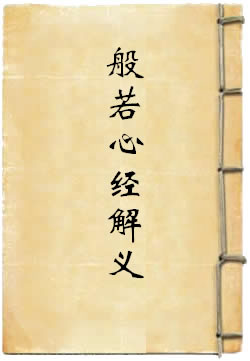 般若心经解义